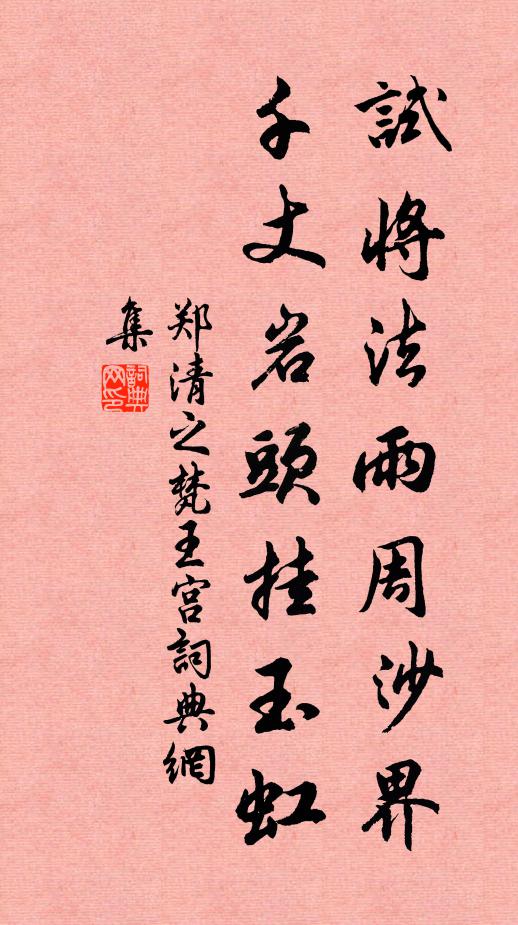 試將法雨周沙界
千丈岩頭挂玉虹
郑清之梵王宫詞典網
集
詞典网印